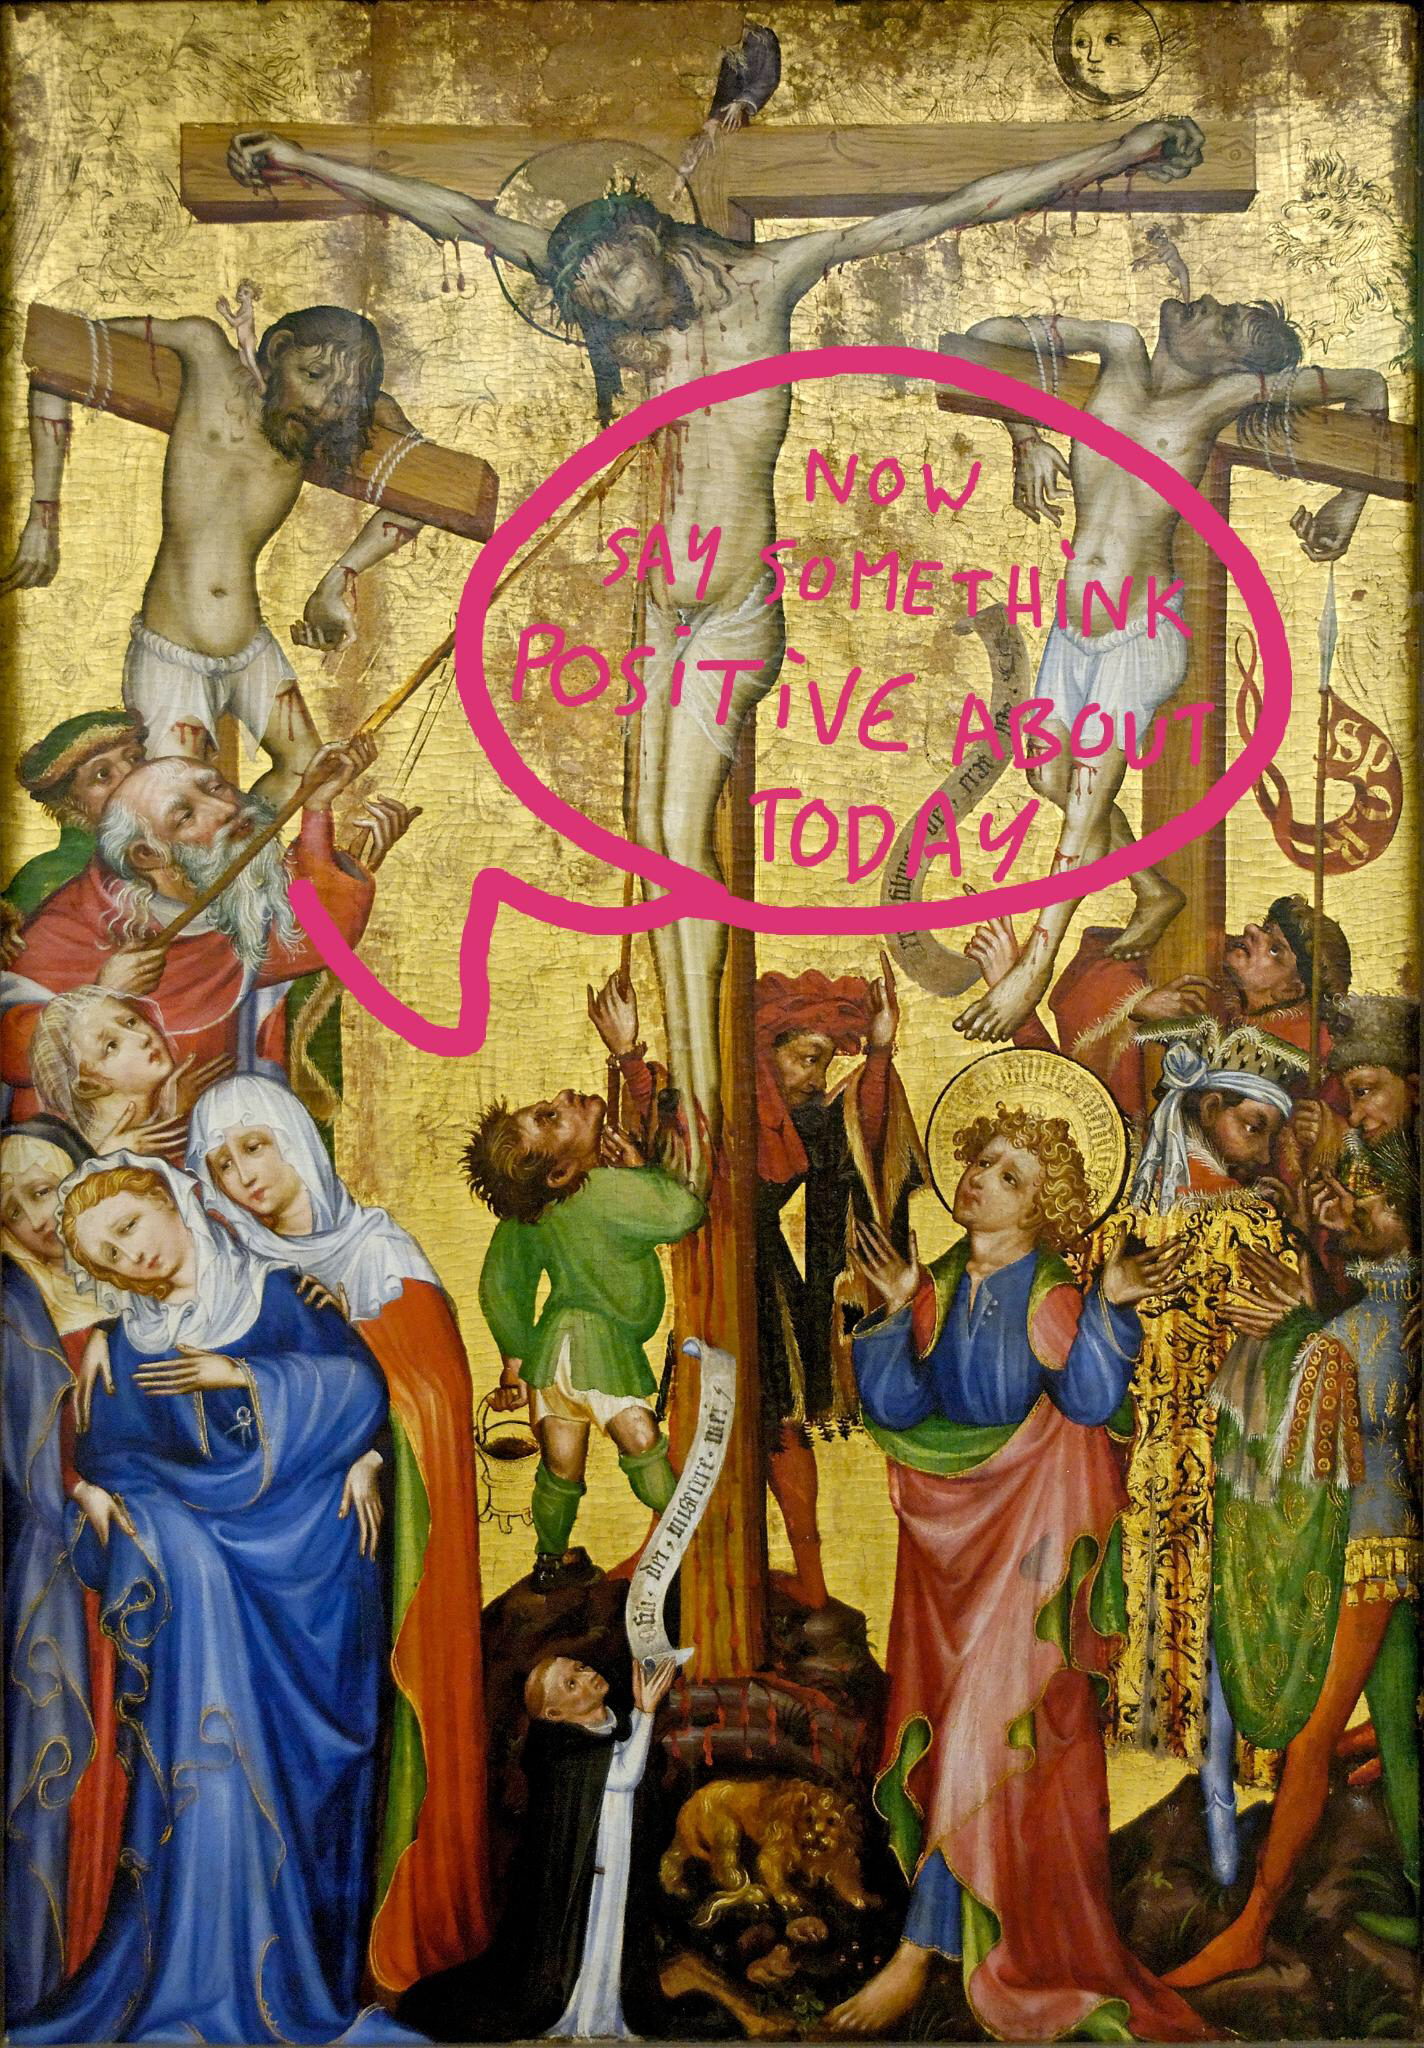 NOW
SAY SOMETHINK
POSITIVE ABOUT
TODAY
fili · dei · miserere · mei